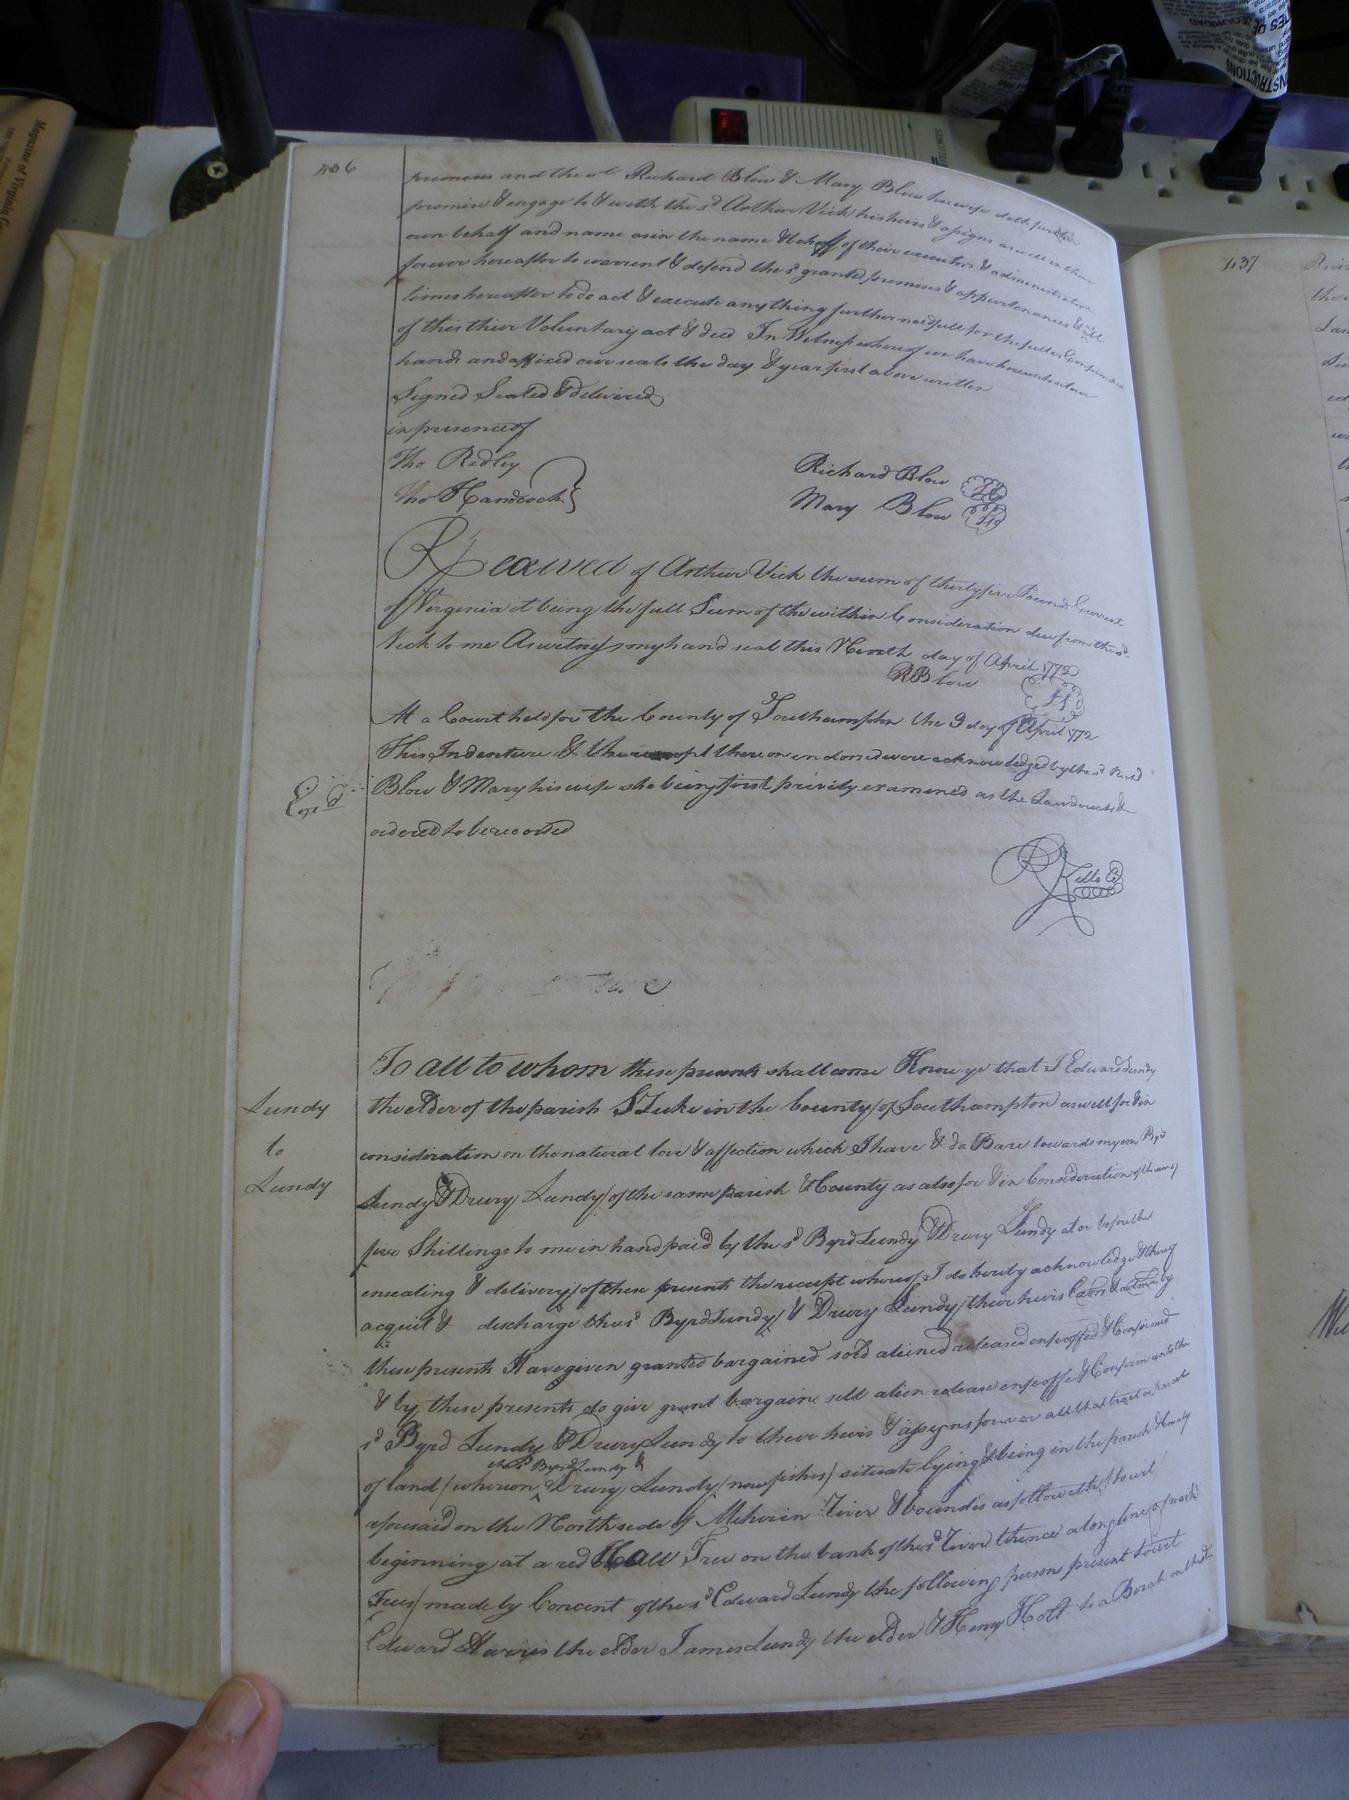 436
premises and the sd Richard Blow & Mary Blow his wife doth further
promise & engage to & with the sd Arthur Vick his heirs & assigns as well in their
own behalf and name as in the name & behalf of their executors & administrators
forever hereafter to warrent & defend the sd granted premises & appurtenances & at all
times hereafter to do act & execute any thing further needfull for the fuller Confirmation
of this thier Voluntary act & deed In Witness whereof we have hereunto set our
hands and affixed our seals the day & year first above written
Signed Sealed & delivered
in presence of
Tho Ridley
Tho Handcock
Richard Blow LS
Mary Blow LS
Received of Arthur Vick the sum of thirty five Pounds Current
of Virginia it being the full Sum of the within Consideration due from the sd
Vick to me As witness my hand & seal this Nineth day of April 1772
R Blow LS
At a Court held for the County of Southampton the 9 day of April 1772
This Indenture & the receipt thereon endorsed were acknowledged by the sd Richd
Exd
Blow & Mary his wife she being first privily examined as the Law directs &
ordered to be recorded
R Kello C
To all to whom these presents shall come Know ye that I Edward Lundy
Lundy
to
Lundy
the elder of the parish St Luke in the County of Southampton as well for & in
consideration on the natural love & affection which I have & do Bare towards my son Byrd
Lundy & Drury Lundy of the same parish & County as also for & in Consideration of the sum of
five Shillings to me in hand paid by the sd Byrd Lundy & Drury Lundy at or before the
ensealing & delivery of these presents the receipt whereof I do hereby acknowledge & thereof
acquit & discharge the sd Byrd Lundy & Drury Lundy their heirs Exors & admrs by
these presents Have given granted bargained sold aliened released enfeoffed & Confirmed
& by these presents do give grant bargain sell alien release enfeoffe & Confirm unto the
sd Byrd Lundy & Drury Lundy to their heirs & assigns forever all that tract or parcel
of land whereon the sd Byrd Lundy & Drury Lundy now fishes situate lying & being in the parish & County
aforesaid on the North side of Meherin River & bounded as followeth to wit
beginning at a red Oak Tree on the bank of the sd River thence along line of markt
Trees made by Concent of the sd Edward Lundy the following persons present to wit
Edward Harris the elder James Lundy the elder & Henry Holt to a Borch on the st
437
Magazine of Virginia
INSTRUCTIONS